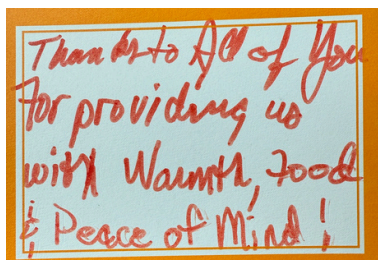 Thanks to All of You
For providing us
with Warmth, Food
& Peace of Mind!